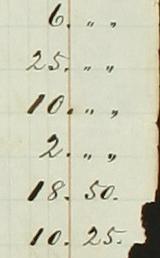 6. " "
25. " "
10. " "
2. " "
18. 50.
10. 25.